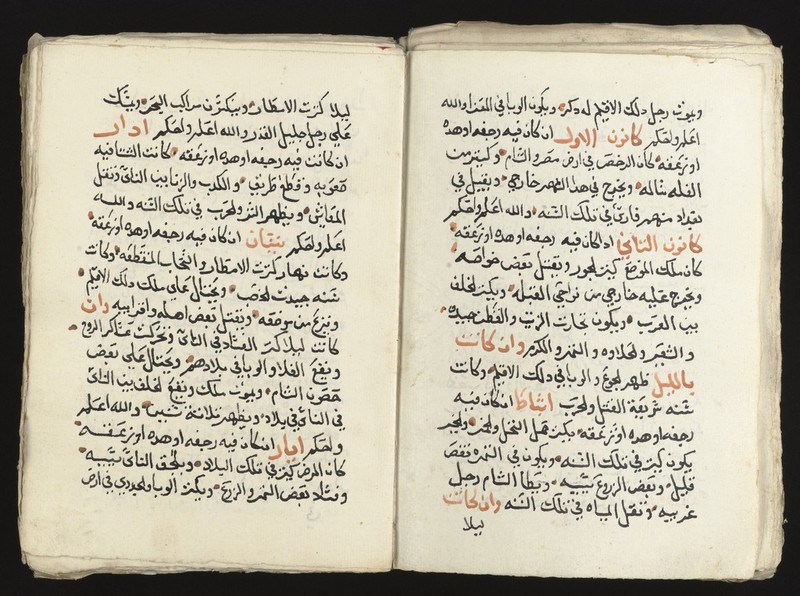 ويموت رجل دلك الاقليم له دكر ويكون الوبا في المعز والله
اعلم واحكم كانون الاول ان كان فيه رجفه او هده
او زعقه كان الرخص في ارض مصر والشام وكيتر من
الغله سالمه ويخرج في هدا الشهر خارجي ويقتل في
بغداد منهم في تلك السنه والله اعلم واحكم
كانون الثاني ادا كان فيه رجفه او هده او زعقه
كان ملك الموضع كتير الجور ويقتل بعض خواصه
ويخرج عليه خارجي من نواحي القبله ويكتر الخلف
بين العرب ويكون تجارت الزيت والقطن جيده
و الشعير والحلاوه و التمر والكرم وان كانت
بالليل ظهر الجوع و الوبا في دلك الاقليم وكانت
سنه القتل والحرب اشباط ان كان فيه
رجفه او هده او زعقه يكتر حمل النخل والخير
يكون كتير في تلك السنه ويكون في التمره نقص
قليل وبعض الزروع ويطا الشام رجل
غريبه وتقل المياه في تلك السنه وان كانت
ليلا
ليلا كترت الامطار من مراكب البحر
علي رجل جليل القدر والله اعلم واحكم ادار
ان كانت فيه رجفه او هده او زعقه كانت الشتا فيه
صعوبه و قطع طريق و الكدب والزنا بين الناس وتقل
المعايش ويظهر الشر والحرب في تلك السنه والله
اعلم واحكم نيسان ان كان فيه رجفه او هده او زعقه
وكانت نهار كترت الامطار و السحاب المنقطعه وكانت
سنه جيدت الخصب ويحتال علي ملك دلك الاقليم
وينزع من موضعه ويقتل بعض اهله واقرابيه وان
كانت ليلا كتر الفساد في الناس وتحركت عساكر الروم
ويقع الغلا والوبا في بلادهم ويحتال علي بعض
حصون الشام ويموت ملك ويقع الخلف بين الناس
في بلاد ويظهر تلاتة والله اعلم
واحكم ايار ان كان فيه رجفه او هده او زعقه
كان المرض كتير في تلك البلاد ويلحق الناس
بعض التمر والزرع ويكتر الوبا والجدري في ارض